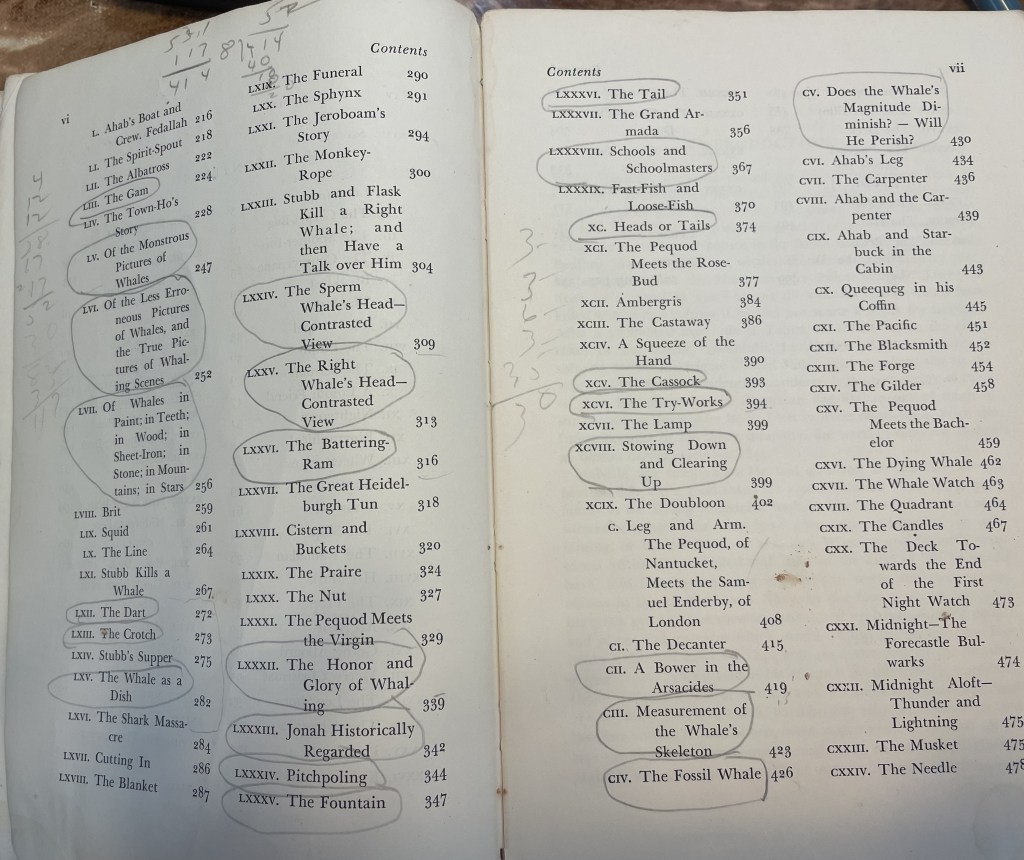 vi
Contents
L. Ahab's Boat and
Crew. Fedallah 216
LI. The Spirit-Spout 218
LII. The Albatross 222
LIII. The Gam 224
LIV. The Town-Ho's
Story 228
LV. Of the Monstrous
Pictures of
Whales 247
LVI. Of the Less Erro-
neous Pictures
of Whales, and
the True Pic-
tures of Whal-
ing Scenes 252
LVII. Of Whales in
Paint; in Teeth;
in Wood; in
Sheet-Iron; in
Stone; in Moun-
tains; in Stars 256
LVIII. Brit 259
LIX. Squid 261
LX. The Line 264
LXI. Stubb Kills a
Whale 267
LXII. The Dart 272
LXIII. The Crotch 273
LXIV. Stubb's Supper 275
LXV. The Whale as a
Dish 282
LXVI. The Shark Massa-
cre 284
LXVII. Cutting In 286
LXVIII. The Blanket 287
LXIX. The Funeral 290
LXX. The Sphynx 291
LXXI. The Jeroboam's
Story 294
LXXII. The Monkey-
Rope 300
LXXIII. Stubb and Flask
Kill a Right
Whale; and
then Have a
Talk over Him 304
LXXIV. The Sperm
Whale's Head—
Contrasted
View 309
LXXV. The Right
Whale's Head—
Contrasted
View 313
LXXVI. The Battering-
Ram 316
LXXVII. The Great Heidel-
burgh Tun 318
LXXVIII. Cistern and
Buckets 320
LXXIX. The Praire 324
LXXX. The Nut 327
LXXXI. The Pequod Meets
the Virgin 329
LXXXII. The Honor and
Glory of Whal-
ing 339
LXXXIII. Jonah Historically
Regarded 342
LXXXIV. Pitchpoling 344
LXXXV. The Fountain 347
Contents
vii
LXXXVI. The Tail 351
LXXXVII. The Grand Ar-
mada 356
LXXXVIII. Schools and
Schoolmasters 367
LXXXIX. Fast-Fish and
Loose-Fish 370
XC. Heads or Tails 374
XCI. The Pequod
Meets the Rose-
Bud 377
XCII. Ambergris 384
XCIII. The Castaway 386
XCIV. A Squeeze of the
Hand 390
XCV. The Cassock 393
XCVI. The Try-Works 394
XCVII. The Lamp 399
XCVIII. Stowing Down
and Clearing
Up 399
XCIX. The Doubloon 402
C. Leg and Arm.
The Pequod, of
Nantucket,
Meets the Sam-
uel Enderby, of
London 408
CI. The Decanter 415
CII. A Bower in the
Arsacides 419
CIII. Measurement of
the Whale's
Skeleton 423
CIV. The Fossil Whale 426
CV. Does the Whale's
Magnitude Di-
minish? — Will
He Perish? 430
CVI. Ahab's Leg 434
CVII. The Carpenter 436
CVIII. Ahab and the Car-
penter 439
CIX. Ahab and Star-
buck in the
Cabin 443
CX. Queequeg in his
Coffin 445
CXI. The Pacific 451
CXII. The Blacksmith 452
CXIII. The Forge 454
CXIV. The Gilder 458
CXV. The Pequod
Meets the Bach-
elor 459
CXVI. The Dying Whale 462
CXVII. The Whale Watch 463
CXVIII. The Quadrant 464
CXIX. The Candles 467
CXX. The Deck To-
wards the End
of the First
Night Watch 473
CXXI. Midnight—The
Forecastle Bul-
warks 474
CXXII. Midnight Aloft—
Thunder and
Lightning 475
CXXIII. The Musket 475
CXXIV. The Needle 478